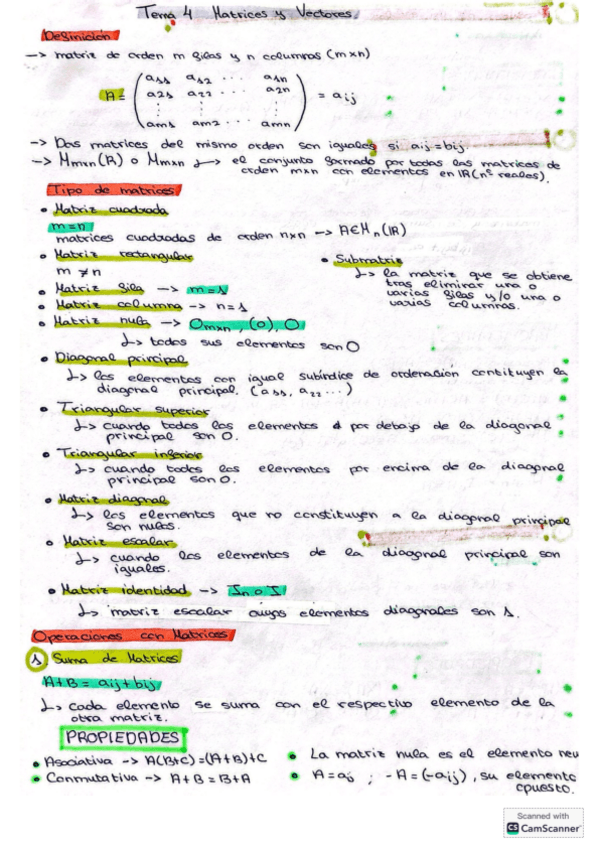 Tema 4 Matrices y Vectores
Definición
-> matriz de orden m filas y n columnas (m×n)
A = ( a11 a12 ··· a1n
a21 a22 ··· a2n
⋮ ⋮ ⋮
am1 am2 ··· amn ) = aij
-> Dos matrices del mismo orden son iguales si aij = bij.
-> Mm×n(R) o Mm×n ↳ el conjunto formado por todas las matrices de
orden m×n con elementos en IR (nº reales).
Tipo de matrices
• Matriz cuadrada
m = n
matrices cuadradas de orden n×n -> A∈Mn(IR)
• Matriz rectangular
m ≠ n
• Submatriz
↳ la matriz que se obtiene
tras eliminar una o
varias filas y/o una o
varias columnas.
• Matriz fila -> m = 1
• Matriz columna -> n = 1
• Matriz nula -> Om×n, (0), O
↳ todos sus elementos son 0
• Diagonal principal
↳ los elementos con igual subíndice de ordenación contituyen la
diagonal principal. (a11, a22 ...)
• Triangular superior
↳ cuando todos los elementos por debajo de la diagonal
principal son 0.
• Triangular inferior
↳ cuando todos los elementos por encima de la diagonal
principal son 0.
• Matriz diagonal
↳ los elementos que no constituyen a la diagonal principal
son nulos.
• Matriz escalar
↳ cuando los elementos de la diagonal principal son
iguales.
• Matriz identidad -> In o I
↳ matriz escalar cuyos elementos diagonales son 1.
Operaciones con Matrices
1 Suma de Matrices
A+B = aij + bij
↳ cada elemento se suma con el respectivo elemento de la
otra matriz.
PROPIEDADES
• Asociativa -> A(B+C) = (A+B)+C
• Conmutativa -> A+B = B+A
• La matriz nula es el elemento neu
• A = aij ; -A = (-aij), su elemento
opuesto.
Scanned with
CS CamScanner